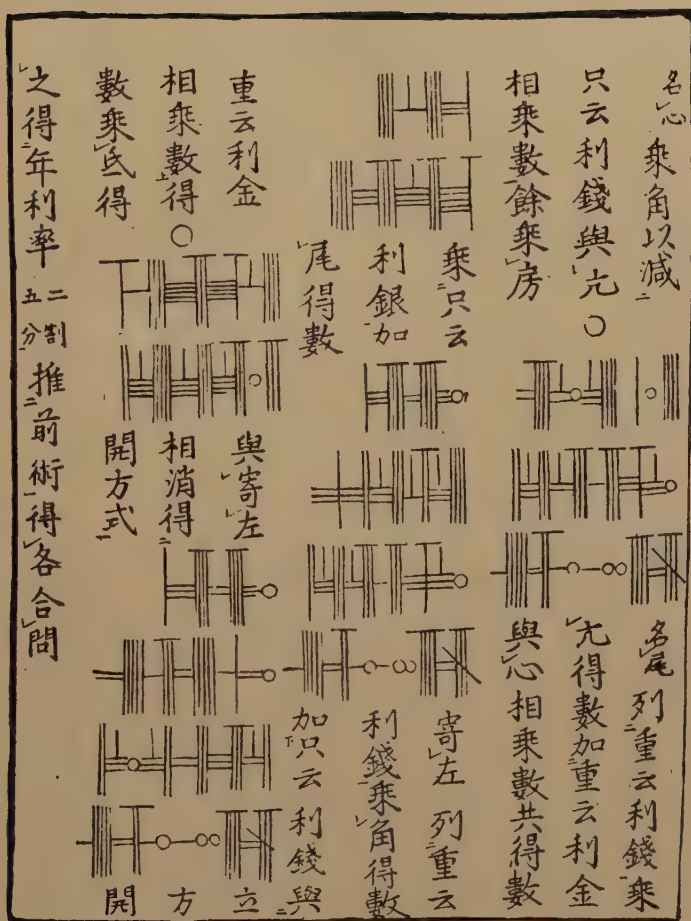 名心
乘角以減
只云利錢與亢〇
相乘數餘乘房
名尾
列重云利錢乘
亢得數加重云利金
與心相乘數共得數
乘只云
利銀加
尾得數
寄左列重云
利錢乘角得數
加只云利錢與
重云利金
相乘數得〇
數乘氐得
與寄左
相消得
開方式
立方開
之得年利率二割五分推前術得各合問